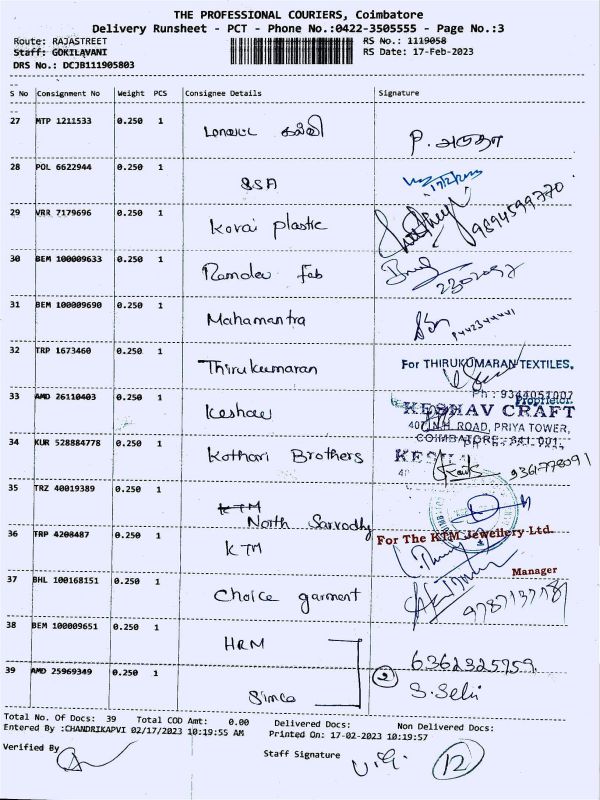 THE PROFESSIONAL COURIERS, Coimbatore
Delivery Runsheet - PCT - Phone No.:0422-3505555 - Page No.:3
Route: RAJASTREET RS No.: 1119058
Staff: GOKILAVANI RS Date: 17-Feb-2023
DRS No.: DCJB111905803
S No Consignment No Weight PCS Consignee Details Signature
27 MTP 1211533 0.250 1 P. அருதா
28 POL 6622944 0.250 1 SSA 17/2/2023
29 VRR 7179696 0.250 1 Kovai plastic 9894599770
30 BEM 100009633 0.250 1 Ramdev fab
31 BEM 100009690 0.250 1 Mahamantra 9442344441
32 TRP 1673460 0.250 1 Thirukumaran For THIRUKUMARAN TEXTILES.
Proprietor.
33 AMD 26110403 0.250 1 Keshav Ph : 9344051007
KESHAV CRAFT
407, N.H. ROAD, PRIYA TOWER,
COIMBATORE - 641 001.
34 KUR 528884778 0.250 1 Kothari Brothers
35 TRZ 40019389 0.250 1 KTM
North Sarvodhy
36 TRP 4208487 0.250 1 KTM For The KTM Jewellery Ltd.
Manager
37 BHL 100168151 0.250 1 Choice garment
38 BEM 100009651 0.250 1 HRM 6362325959
39 AMD 25969349 0.250 1 Simco 2 S. Selvi
Total No. Of Docs: 39 Total COD Amt: 0.00 Delivered Docs: Non Delivered Docs:
Entered By :CHANDRIKAPVI 02/17/2023 10:19:55 AM Printed On: 17-02-2023 10:19:57
Verified By Staff Signature 12